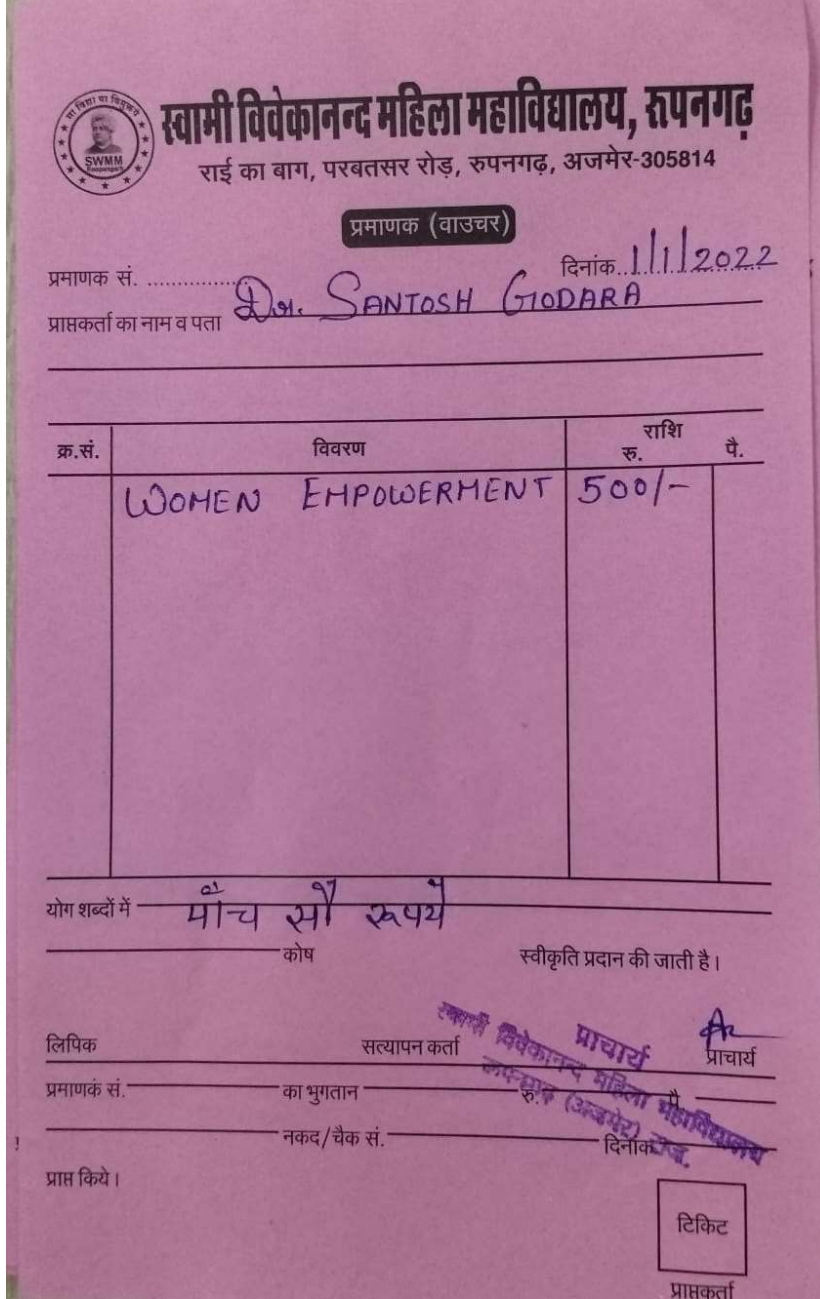 सा विद्या या विमुक्तये
SWMM
Roopangarh
स्वामी विवेकानन्द महिला महाविद्यालय, रुपनगढ़
राई का बाग, परबतसर रोड़, रुपनगढ़, अजमेर-305814
प्रमाणक (वाउचर)
प्रमाणक सं. ............... दिनांक..1/1/2022
प्राप्तकर्ता का नाम व पता Dr. SANTOSH GODARA
क्र.सं. विवरण राशि
रु. पै.
WOMEN EMPOWERMENT 500/-
योग शब्दों में पाँच सौ रूपये
कोष स्वीकृति प्रदान की जाती है।
लिपिक सत्यापन कर्ता प्राचार्य
प्राचार्य
स्वामी विवेकानन्द महिला महाविद्यालय
रूपनगढ़ (अजमेर) राज.
प्रमाणकं सं. का भुगतान रु. पै.
नकद/चैक सं. दिनांक
प्राप्त किये।
टिकिट
प्राप्तकर्ता